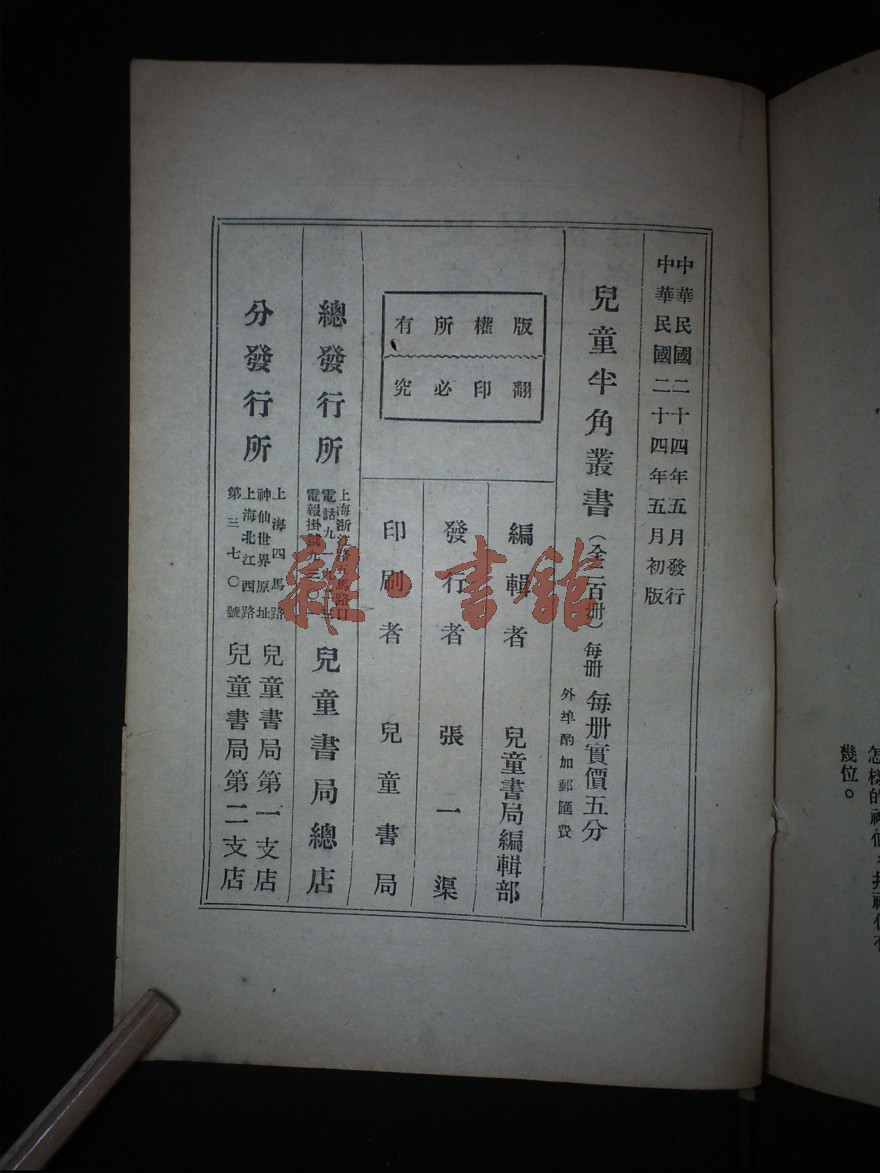 中華民國二十四年五月發行
中華民國二十四年五月初版
兒童半角叢書（全二百册）每册 每册實價五分
外埠酌加郵匯費
版權所有
翻印必究
編輯者 兒童書局編輯部
發行者 張一渠
印刷者 兒童書局
總發行所
上海浙江路五馬路口
電話九一九
電報掛號九三〇一
兒童書局總店
分發行所
上海四馬路
神仙世界原址
兒童書局第一支店
上海北江西路
第三七〇號
兒童書局第二支店
幾位。
雜·書館